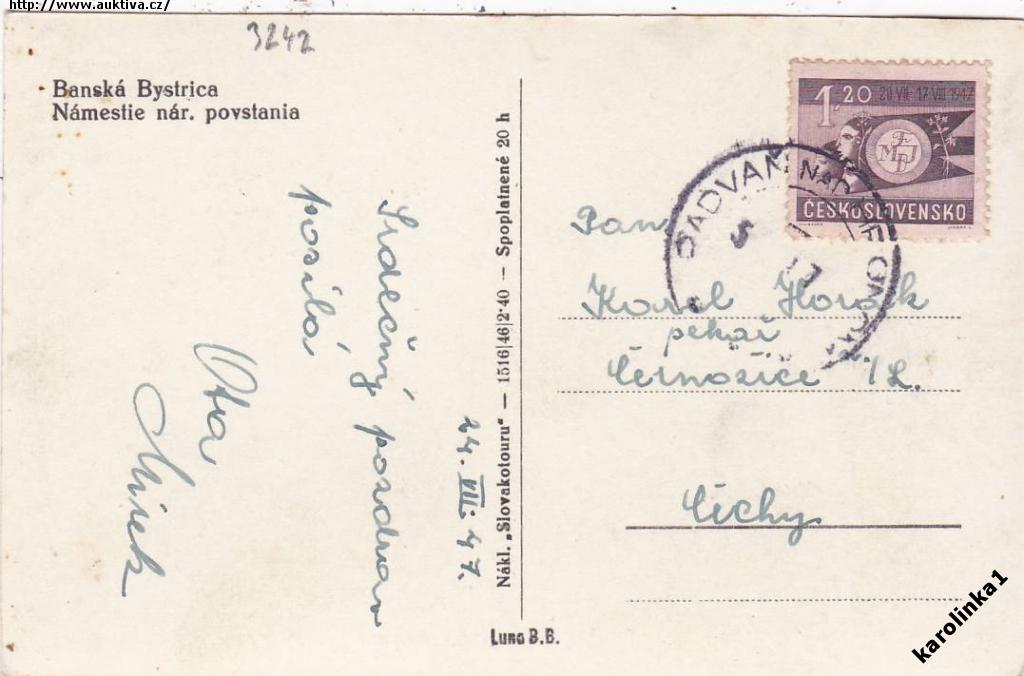 http://www.auktiva.cz/
3242
Banská Bystrica
Námestie nár. povstania
Srdečný pozdrav
posílá
Ota
Mirek
24. VII. 47.
Nákl. „Slovakotouru" — 1516|46|2·40 — Spoplatnené 20 h
Luna B.B.
1,20 20 VII - 17 VIII 1947
ČESKOSLOVENSKO
RADVAŇ NAD HRONOM
Pan
Karel Horák
pekař
Černožice n/L.
Čechy
karolinka1